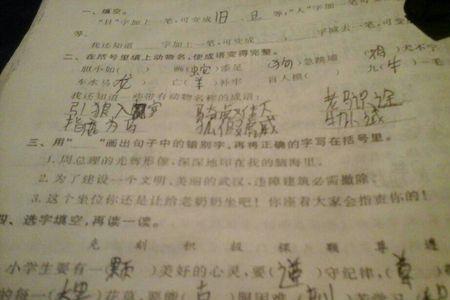 一、填空。
"日"字加上一笔,可变成旧 旦 等,"人"字加一笔
等。
我还知道 字加上一笔,可变成 字减去一笔,可变
二、在括号里填上动物名,使成语变得完整。
胆小如( ) 画(蛇)添足 (狗)急跳墙 (鸡)犬不宁
车水马龙 亡(羊)补牢 盲人摸( ) 九(牛)一毛
我还知道一些带有动物名称的成语:
引狼入室 老马识途
指鹿为马 狐假虎威
三、用" "画出句子中的错别字,再将正确的字写在括号里。
1.周总理的光辉形像,深深地印在我的脑海里。
2.为了建设一个文明、美丽的武汉,违障建筑必需撤除。
3.这个坐位你还是让给老奶奶坐吧!你座着大家会指责你的!
四、选字填空,再读一读。
克 刻 积 极 棵 颗 尊 遵
小学生要有一(颗)美好的心灵,要(遵)守纪律,(尊)